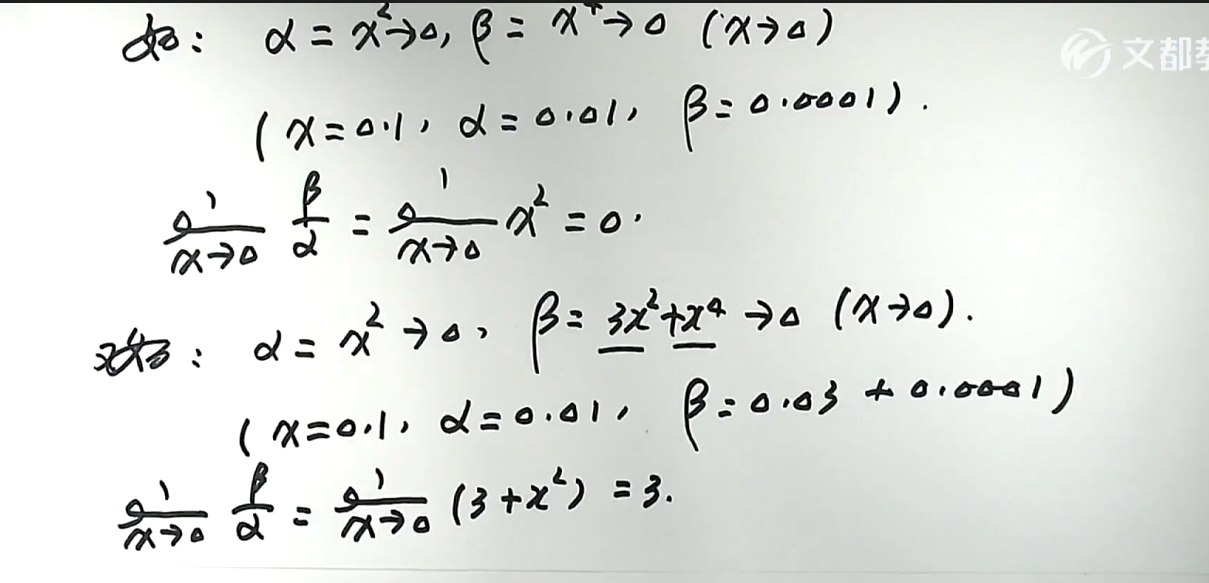 如: α = x²→0, β = x⁴→0 (x→0)
文都教
(x=0.1, α=0.01, β=0.0001).
lim x→0 β/α = lim x→0 x² = 0.
又如: α = x²→0, β = 3x²+x⁴→0 (x→0).
(x=0.1, α=0.01, β=0.03+0.0001)
lim x→0 β/α = lim x→0 (3+x²) = 3.